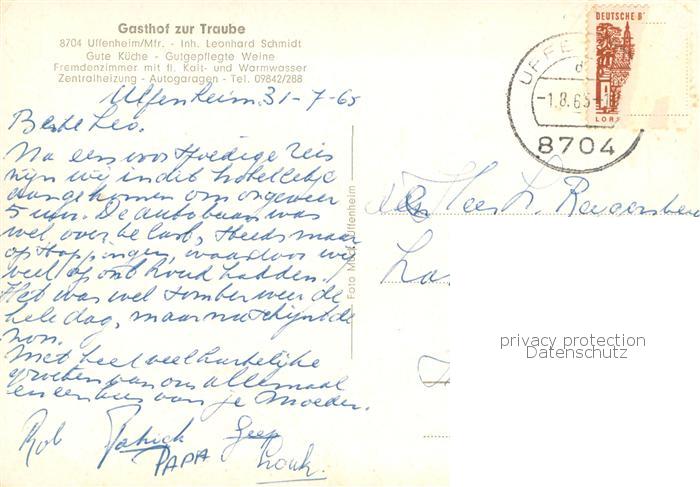 Gasthof zur Traube
8704 Uffenheim/Mfr. - Inh. Leonhard Schmidt
Gute Küche - Gutgepflegte Weine
Fremdenzimmer mit fl. Kalt- und Warmwasser
Zentralheizung - Autogaragen - Tel. 09842/288
Uffenheim. 31-7-65
Beste Leo.
Na een voorspoedige reis
zijn wij in dit hotelletje
aangekomen om ongeveer
5 uur. De autobaan was
wel over belast, steeds maar
opstoppingen, waardoor we
veel oponthoud hadden.
Het was wel somber weer de
hele dag, maar nu schijnt de
zon.
Met heel veel hartelijke
groeten van ons allemaal
en een kus van je Moeder.
Rob Patrick Geep
PAPA Louk.
Foto Uffenheim
DEUTSCHE B
LOR
UFFE
-1.8.65-
8704
Heer L.
privacy protection
Datenschutz